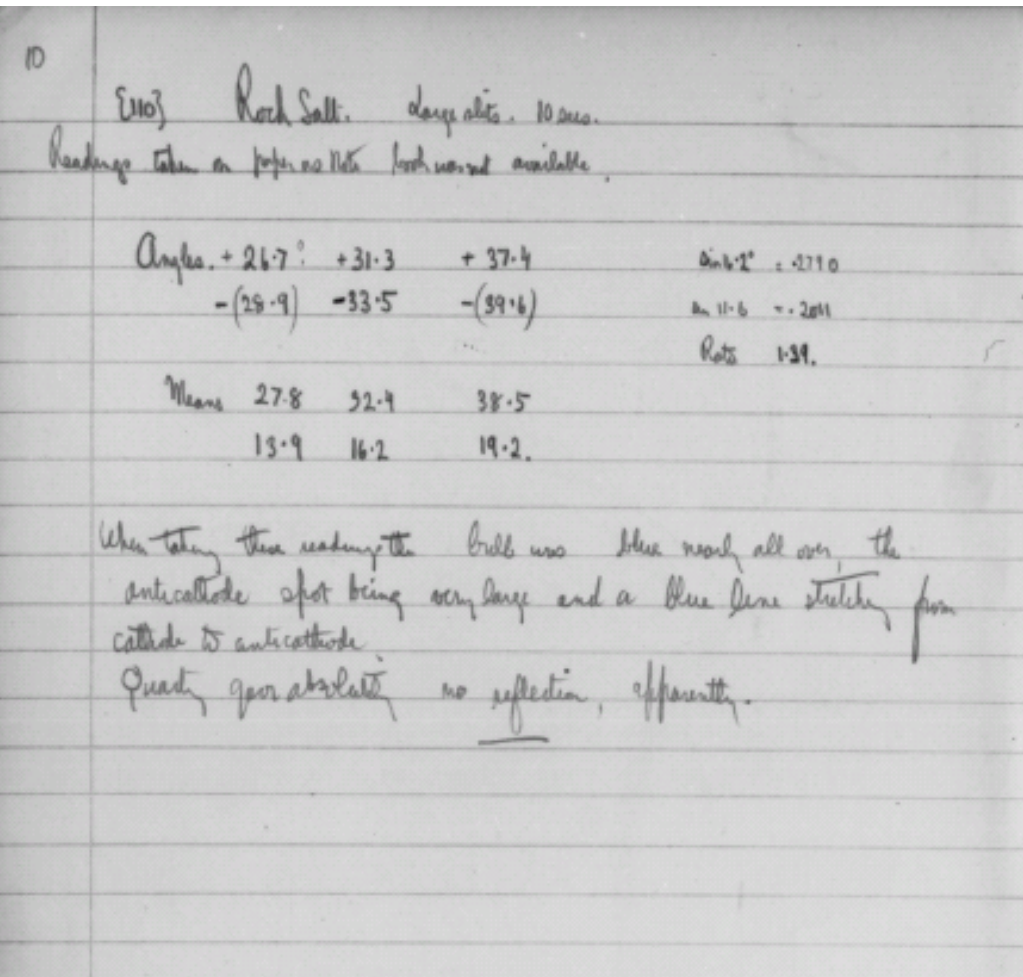 10
{110} Rock Salt. Large slits. 10 secs.
Readings taken on paper as Note book was not available.
Angles. + 26.7° +31.3 + 37.4
-(28.9) -33.5 -(39.6)
Sin 16.2° = .2790
sin 11.6 = .2011
Ratio 1.39.
Means 27.8 32.4 38.5
13.9 16.2 19.2.
When taking these readings the bulb was blue nearly all over, the
anticathode spot being very large and a blue line stretching from
cathode to anticathode.
Quartz gave absolutely no reflection, apparently.